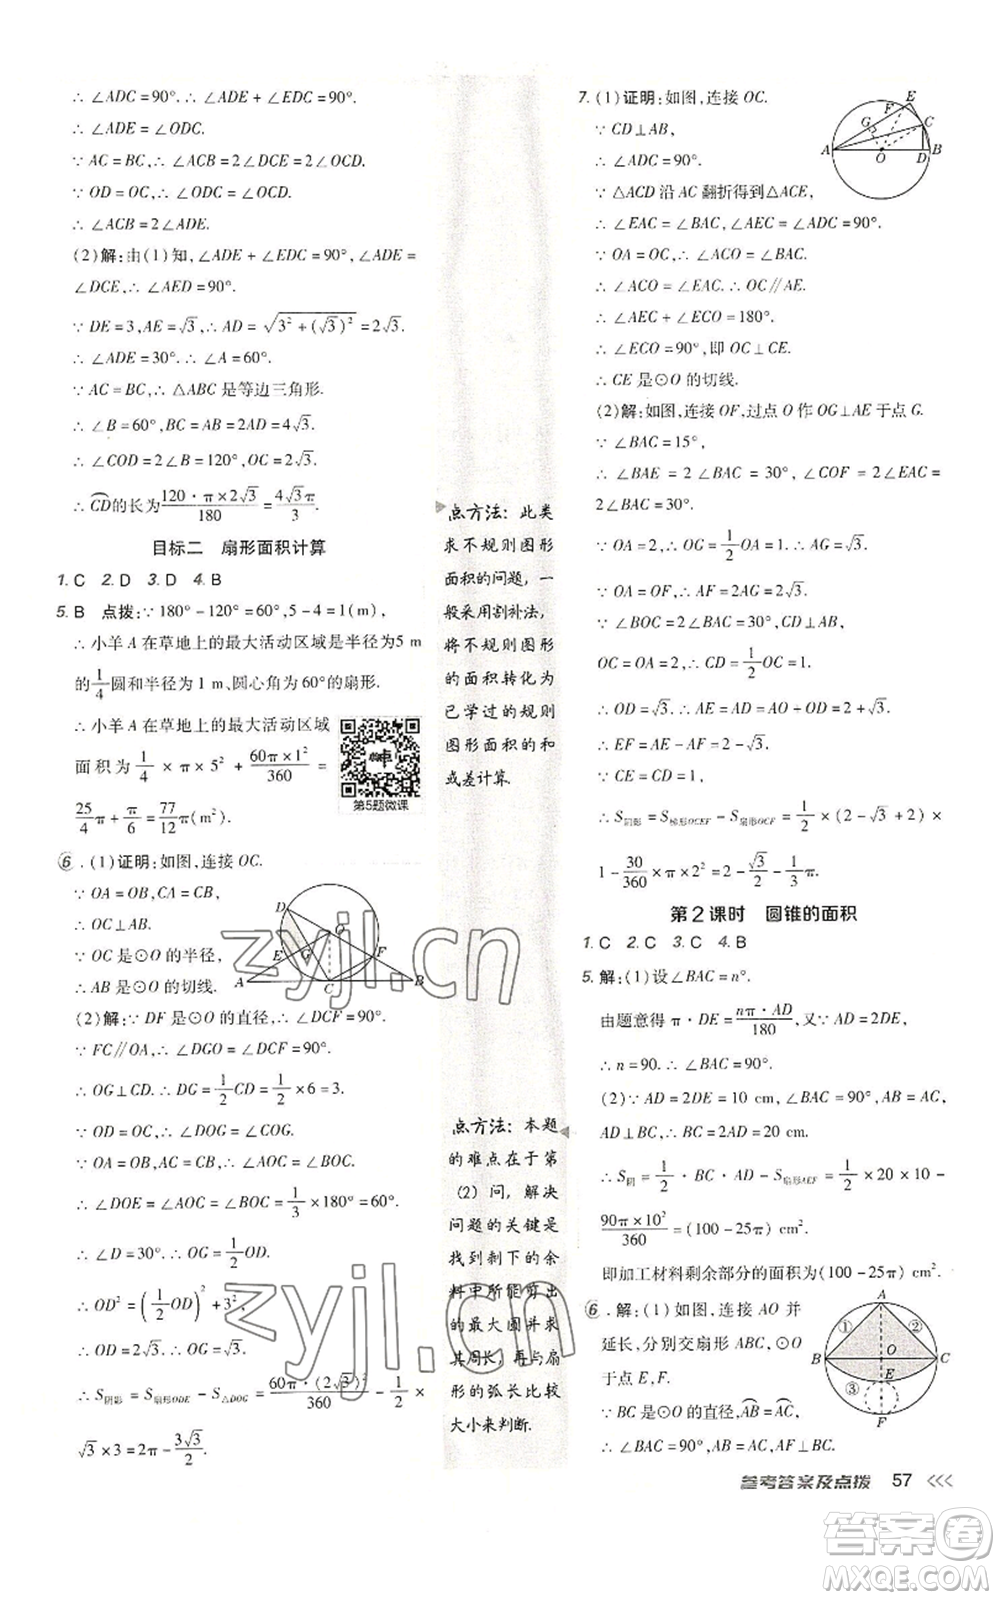 ∴ ∠ADC=90°. ∴ ∠ADE+∠EDC=90°.
∴ ∠ADE=∠ODC.
∵ AC=BC, ∴ ∠ACB=2∠DCE=2∠OCD.
∵ OD=OC, ∴ ∠ODC=∠OCD.
∴ ∠ACB=2∠ADE.
(2)解:由(1)知, ∠ADE+∠EDC=90°, ∠ADE=
∠DCE, ∴ ∠AED=90°.
∵ DE=3, AE=√3, ∴ AD=√(3²+(√3)²)=2√3.
∴ ∠ADE=30°.
∵ AC=BC, ∴ △ABC 是等边三角形.
∴ ∠B=60°, BC=AB=2AD=4√3.
∴ ∠COD=2∠B=120°, OC=2√3.
∴ CD的长为(120·π×2√3)/180=4√3π/3.
目标二 扇形面积计算
1. C 2. D 3. D 4. B
5. B 点拨:∵ 180°-120°=60°, 5-4=1(m),
∴ 小羊 A 在草地上的最大活动区域是半径为5 m
的1/4圆和半径为 1 m, 圆心角为 60°的扇形.
∴ 小羊 A 在草地上的最大活动区域
面积为 1/4 ×π×5²+ (60π×1²)/360 =
25/4 π+ π/6 = 77/12 π(m²).
第5题微课
6. (1)证明:如图,连接 OC.
∵ OA=OB, CA=CB,
∴ OC⊥AB.
∵ OC 是⊙O 的半径,
∴ AB 是⊙O 的切线.
D
O
E G F
A C B
(2)解:∵ DF 是⊙O 的直径, ∴ ∠DCF=90°.
∵ FC∥OA, ∴ ∠DGO=∠DCF=90°.
∴ OG⊥CD. ∴ DG=1/2 CD=1/2×6=3.
∵ OD=OC, ∴ ∠DOG=∠COG.
∵ OA=OB, ∴ ∠AOC=∠BOC.
∴ ∠DOE=∠AOC=∠BOC=1/3×180°=60°.
∴ ∠D=30°. ∴ OG=1/2 OD.
∴ OD²=(1/2 OD)²+3².
∴ OD=2√3. ∴ OG=√3.
∴ S阴影=S扇形ODE-S△DOG=(60π·(2√3)²)/360-1/2×
√3×3=2π-3√3/2.
点方法:此类
求不规则图形
面积的问题,一
般采用割补法,
将不规则图形
的面积转化为
已学过的规则
图形面积的和
或差计算.
点方法:本题
的难点在于第
(2)问,解决
问题的关键是
找到剩下的余
料中所能剪出
的最大圆并求
其周长,再与扇
形的弧长比较
大小来判断.
7. (1)证明:如图,连接 OC.
∵ CD⊥AB,
∴ ∠ADC=90°.
∵ △ACD 沿 AC 翻折得到△ACE,
E
F
G C
A O D B
∴ ∠EAC=∠BAC, ∠AEC=∠ADC=90°.
∵ OA=OC, ∴ ∠ACO=∠BAC.
∴ ∠ACO=∠EAC. ∴ OC∥AE.
∴ ∠AEC+∠ECO=180°.
∴ ∠ECO=90°, 即 OC⊥CE.
∴ CE 是⊙O 的切线.
(2)解:如图,连接 OF,过点 O 作 OG⊥AE 于点 G.
∵ ∠BAC=15°,
∴ ∠BAE=2∠BAC=30°, ∠COF=2∠EAC=
30°.
∵ OA=2, ∴ OG=1/2 OA=1. ∴ AG=√3.
∵ OA=OF, ∴ AF=2AG=2√3.
∵ ∠BOC=2∠BAC=30°, CD⊥AB,
OC=OA=2, ∴ CD=1/2 OC=1.
∴ OD=√3. ∴ AE=AD=AO+OD=2+√3.
∴ EF=AE-AF=2-√3.
∵ CE=CD=1,
∴ S阴影=S梯形OCEF-S扇形OCF=1/2×(2-√3+2)×
1-30/360×π×2²=2-√3/2-1/3π.
第2课时 圆锥的面积
1. C 2. C 3. C 4. B
5. 解:(1)设∠BAC=n°.
由题意得 π·DE=(nπ·AD)/180, 又∵ AD=2DE,
∴ n=90. ∴ ∠BAC=90°.
(2)∵ AD=2DE=10 cm, ∠BAC=90°, AB=AC,
AD⊥BC, ∴ BC=2AD=20 cm.
∴ S阴=1/2·BC·AD-S扇形AEF=1/2×20×10-
(90π×10²)/360=(100-25π) cm².
即加工材料剩余部分的面积为(100-25π) cm².
6. 解:(1)如图,连接 AO 并
延长,分别交扇形 ABC, ⊙O
于点 E, F.
∵ BC 是⊙O 的直径, AB=AC,
∴ ∠BAC=90°, AB=AC.
A
① ②
B O C
E
③
F
参考答案及点拨 57
zyjl.cn
zyjl.cn
答案卷
MXQE.COM